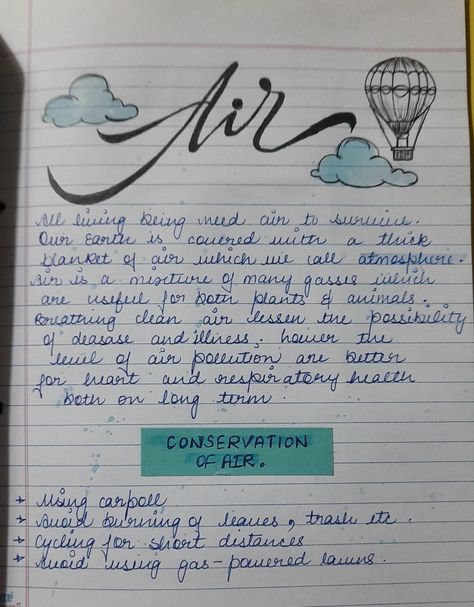 Air
All living being need air to survive.
Our Earth is covered with a thick
blanket of air which we call atmosphere.
Air is a mixture of many gasses which
are useful for both plants & animals.
Breathing clean air lessen the possibility
of deasase and illness. hower the
level of air pollution are better
for heart and respiratory health
both on long term.
CONSERVATION
OF AIR.
+ Using carpoll
+ Avoid burning of leaves, trash etc.
+ Cycling for short distances
+ Avoid using gas-powered lawns.